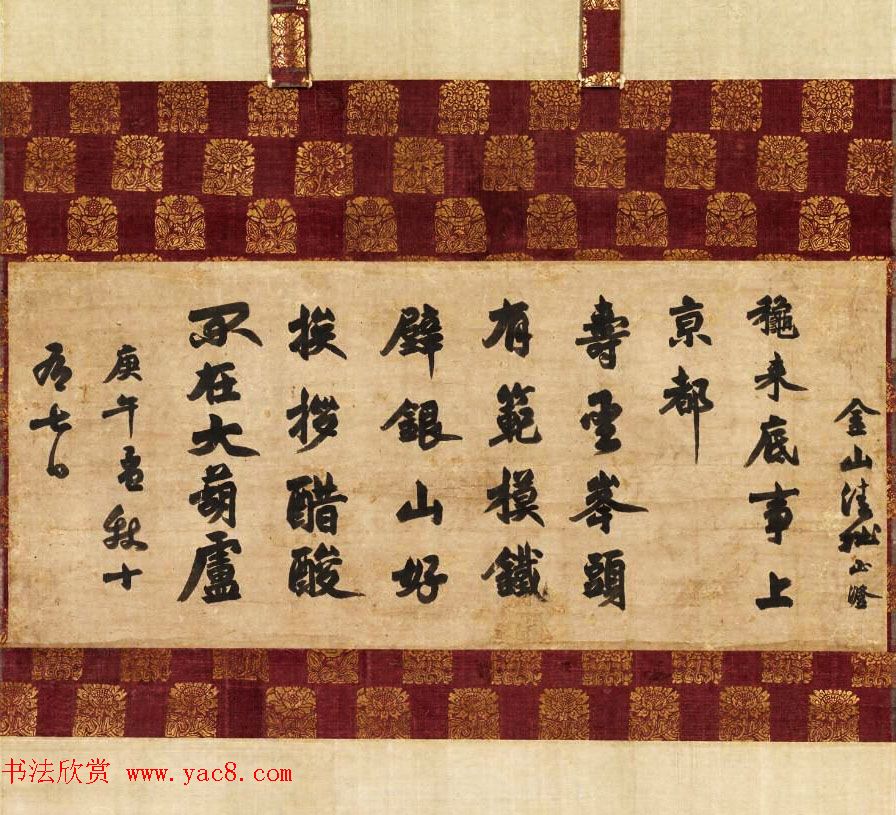 金山清拙正澄
穐来底事上
亰都
壽雲峯頭
有範模鐵
壁銀山好
挨拶醋酸
不在大葫盧
庚午孟秋十
有七日
书法欣赏 www.yac8.com